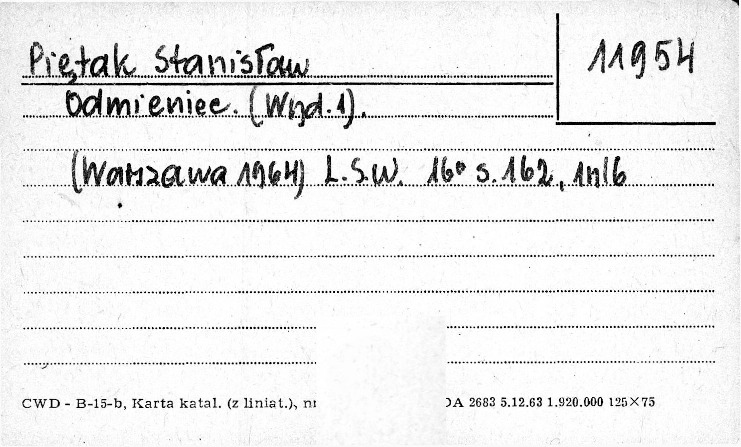 Piętak Stanisław
11954
Odmieniec. (Wyd. 1).
(Warszawa 1964) L.S.W. 16° s. 162, 1nlb
CWD - B-15-b, Karta katal. (z liniat.), nr
DA 2683 5.12.63 1.920.000 125×75